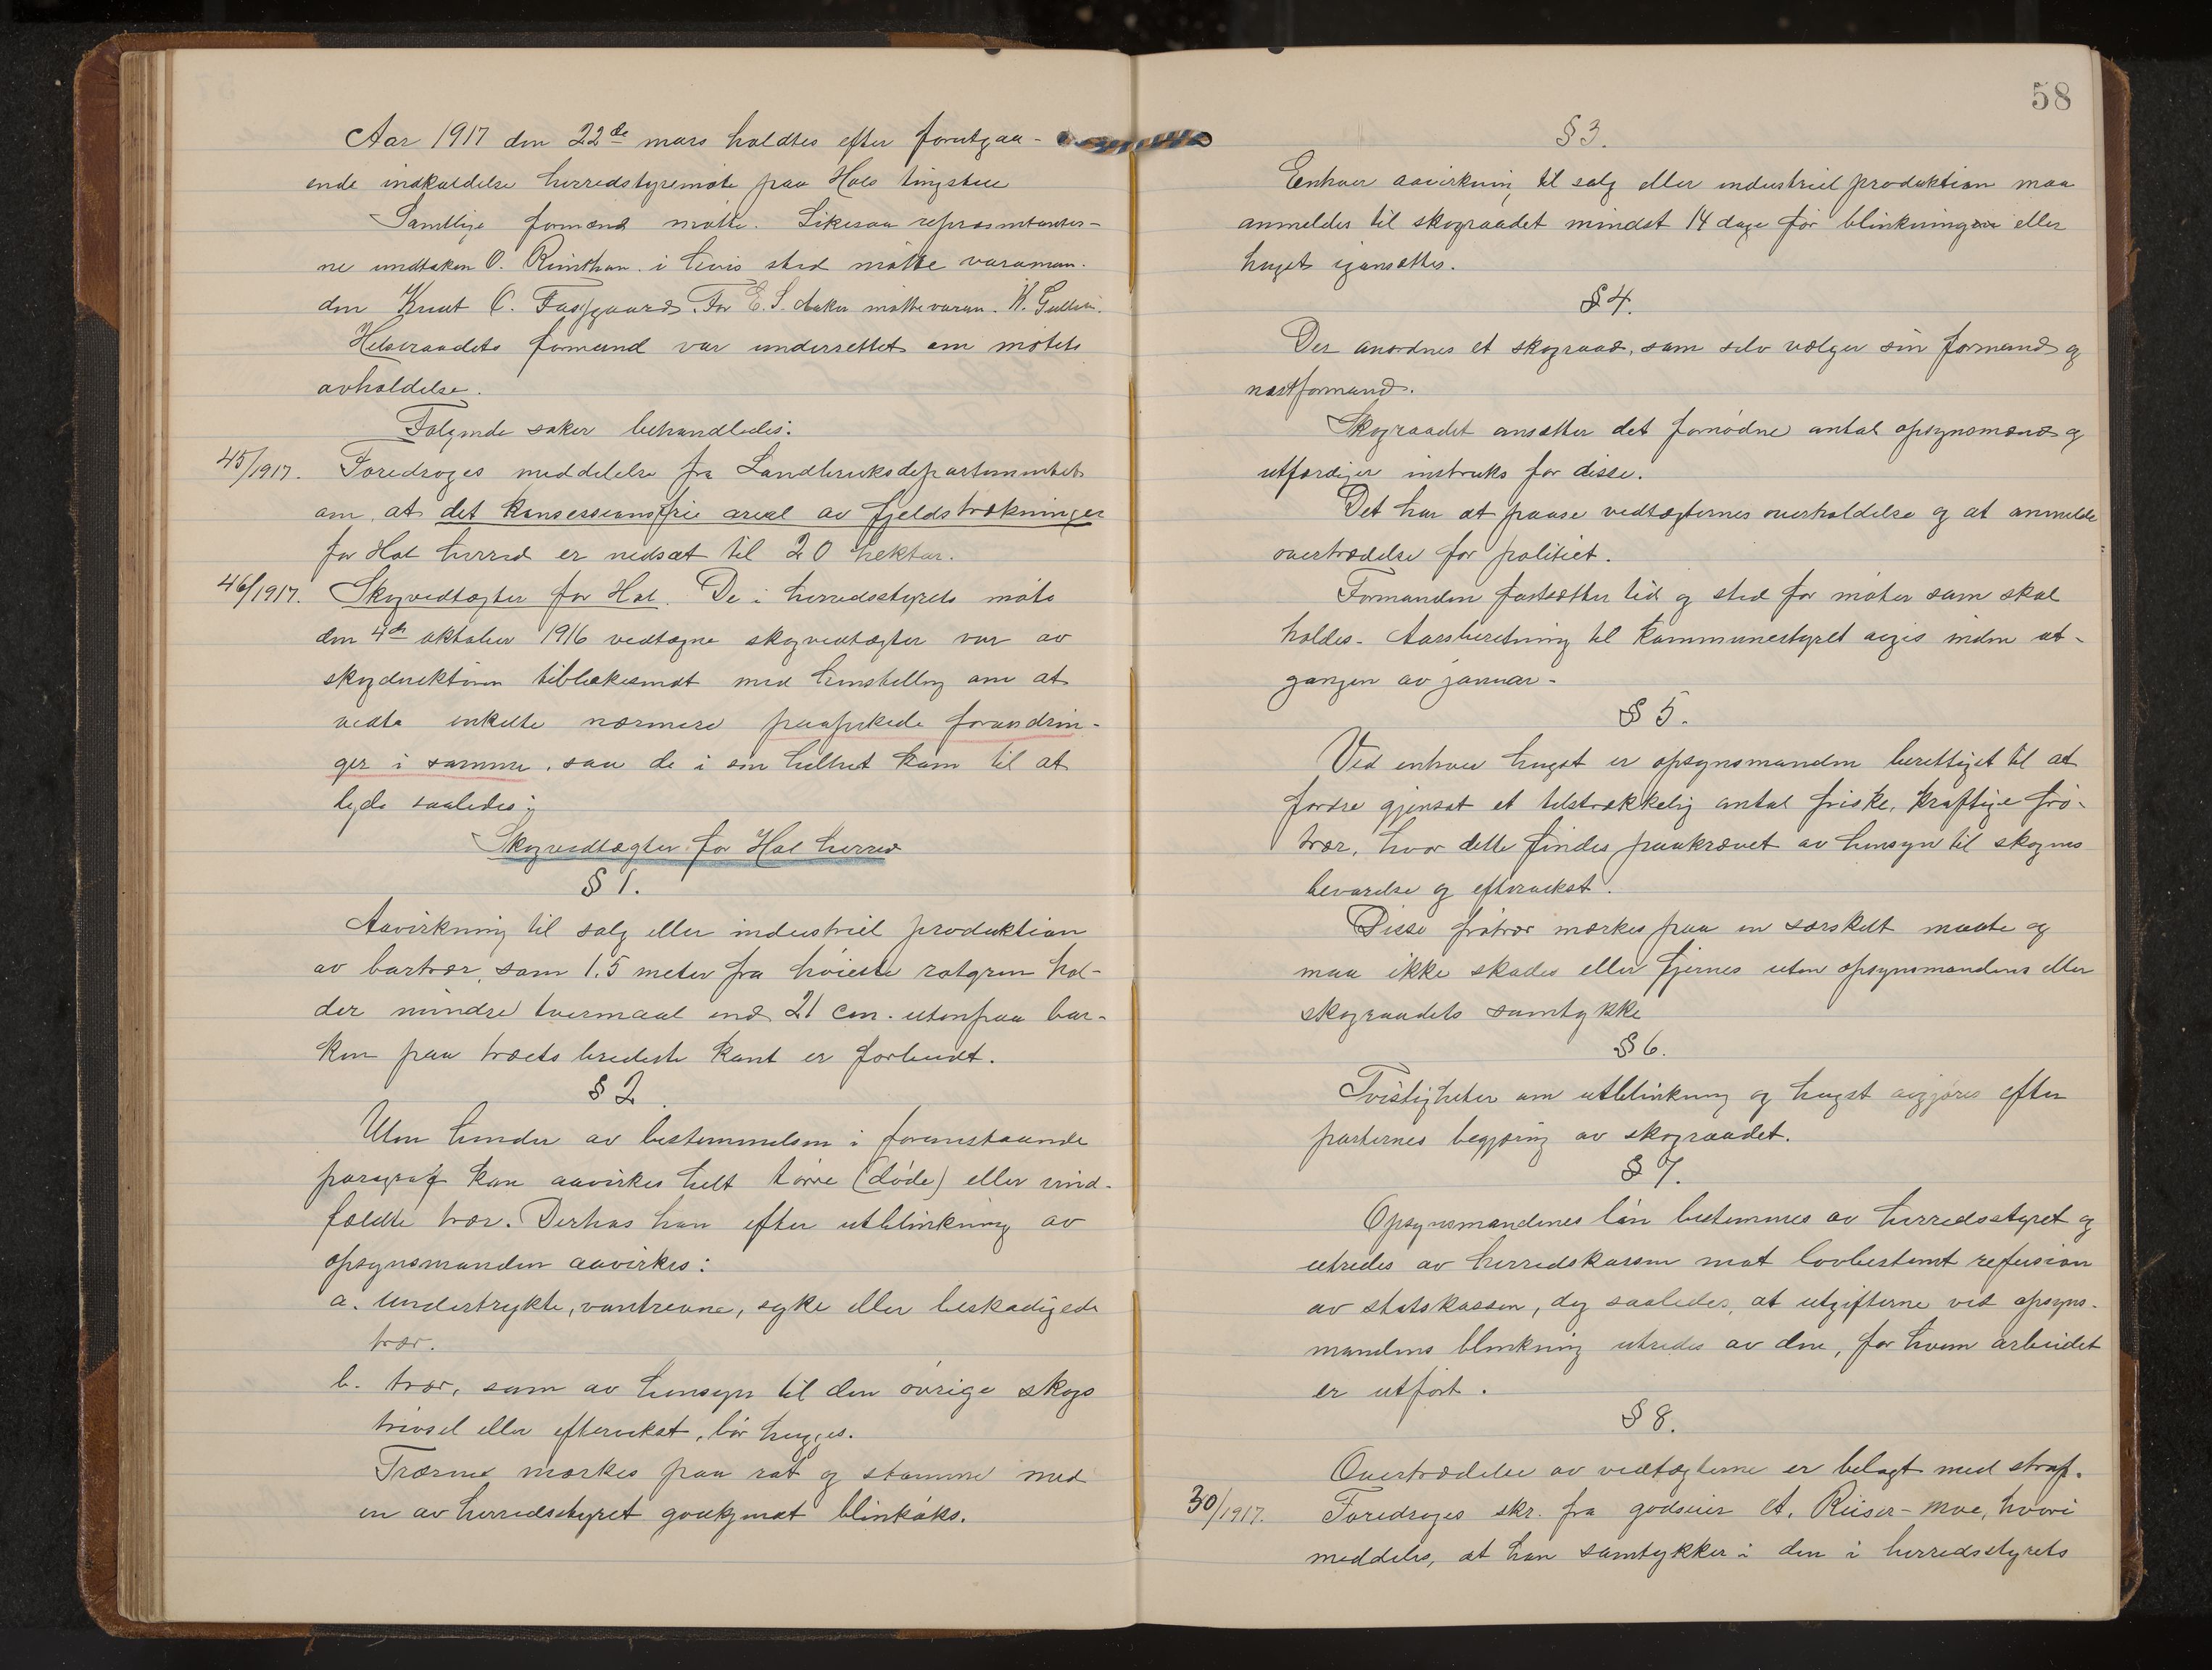 Aar 1917 den 22de mars holdtes efter forutgaa-
ende indkaldelse herredstyremøte paa Hols tingstue
Samtlige formænd møtte. Likesaa repræsentanter-
ne undtaken O. i hvis sted møtte varaman-
den Knut C. For E. S. Aaker møtte varam. K.
Helseraadets formand var underrettet om møtets
avholdelse.
Følgende saker behandledes:
45/1917. Foredroges meddelelse fra Landbruksdepartementet
om, at det konsessionsfrie areal av fjeldstrækninger
for Hol herred er nedsat til 20 hektar.
46/1917. Skogvedtægter for Hol. De i herredsstyrets møte
den 4de oktober 1916 vedtagne skogvedtægter var av
skogdirektøren tilbakesendt med henstilling om at
vedta enkelte nærmere paapekede forandrin-
ger i samme, saa de i sin helhet kom til at
lyde saaledes:
Skogvedtægter for Hol herred
§ 1.
Aavirkning til salg eller industriel produktion
av bartrær, som 1.5 meter fra høieste rotgren hol-
der mindre tvermaal end 21 cm. utenpaa bar-
ken paa træets bredeste kant er forbudt.
§ 2.
Uten hinder av bestemmelsen i foranstaaende
paragraf kan aavirkes helt tørre (døde) eller vind-
fældte trær. Derhos kan efter utblinkning av
opsynsmanden aavirkes:
a. undertrykte, vantrevne, syke eller beskadigede
trær.
b. trær, som av hensyn til den øvrige skogs
trivsel eller eftervekst, bør hugges.
Trærne mærkes paa rot og stamme med
en av herredsstyret godkjendt blinkøks.
58
§ 3.
Enhver aavirkning til salg eller industriel produktion maa
anmeldes til skograadet mindst 14 dage før blinkningen eller
hugst igansættes.
§ 4.
Der anordnes et skograad, som selv vælger sin formand og
næstformand.
Skograadet ansætter det fornødne antal opsynsmænd og
utfærdiger instruks for disse.
Det har at paase vedtægternes overholdelse og at anmelde
overtrædelse for politiet.
Formanden fastsætter tid og sted for møter som skal
holdes. Aarsberetning til kommunestyret avgis inden ut-
gangen av januar.
§ 5.
Ved enhver hugst er opsynsmanden berettiget til at
fordre gjensat et tilstrækkelig antal friske, kraftige frø-
trær, hvor dette findes paakrævet av hensyn til skogens
bevarelse og eftervekst.
Disse frøtrær mærkes paa en særskilt maate og
maa ikke skades eller fjernes uten opsynsmandens eller
skograadets samtykke
§ 6.
Tvistigheter om utblinkning og hugst avgjøres efter
parternes begjæring av skograadet.
§ 7.
Opsynsmandenes løn bestemmes av herredsstyret og
utredes av herredskassen mot lovbestemt refusion
av statskassen, dog saaledes, at utgifterne ved opsyns-
mandens blinkning utredes av den, for hvem arbeidet
er utført.
§ 8.
Overtrædelse av vedtægterne er belagt med straf.
30/1917. Foredroges skr. fra godseier A. Riiser-Moe, hvori
meddeles, at han samtykker i den i herredsstyrets